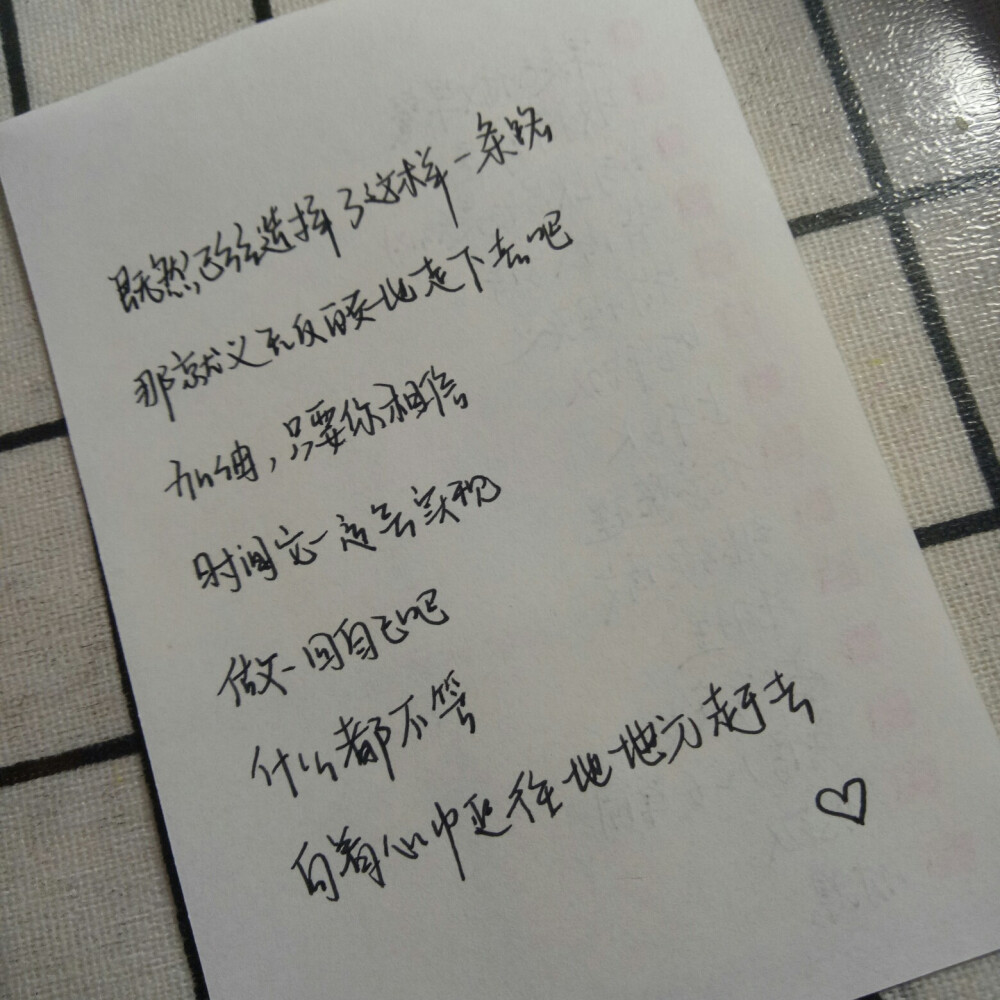 既然已经选择了这样一条路
那就义无反顾地走下去吧
加油,只要你相信
时间它一定会实现
做一回自己吧
什么都不管
向着心中向往地地方赶去